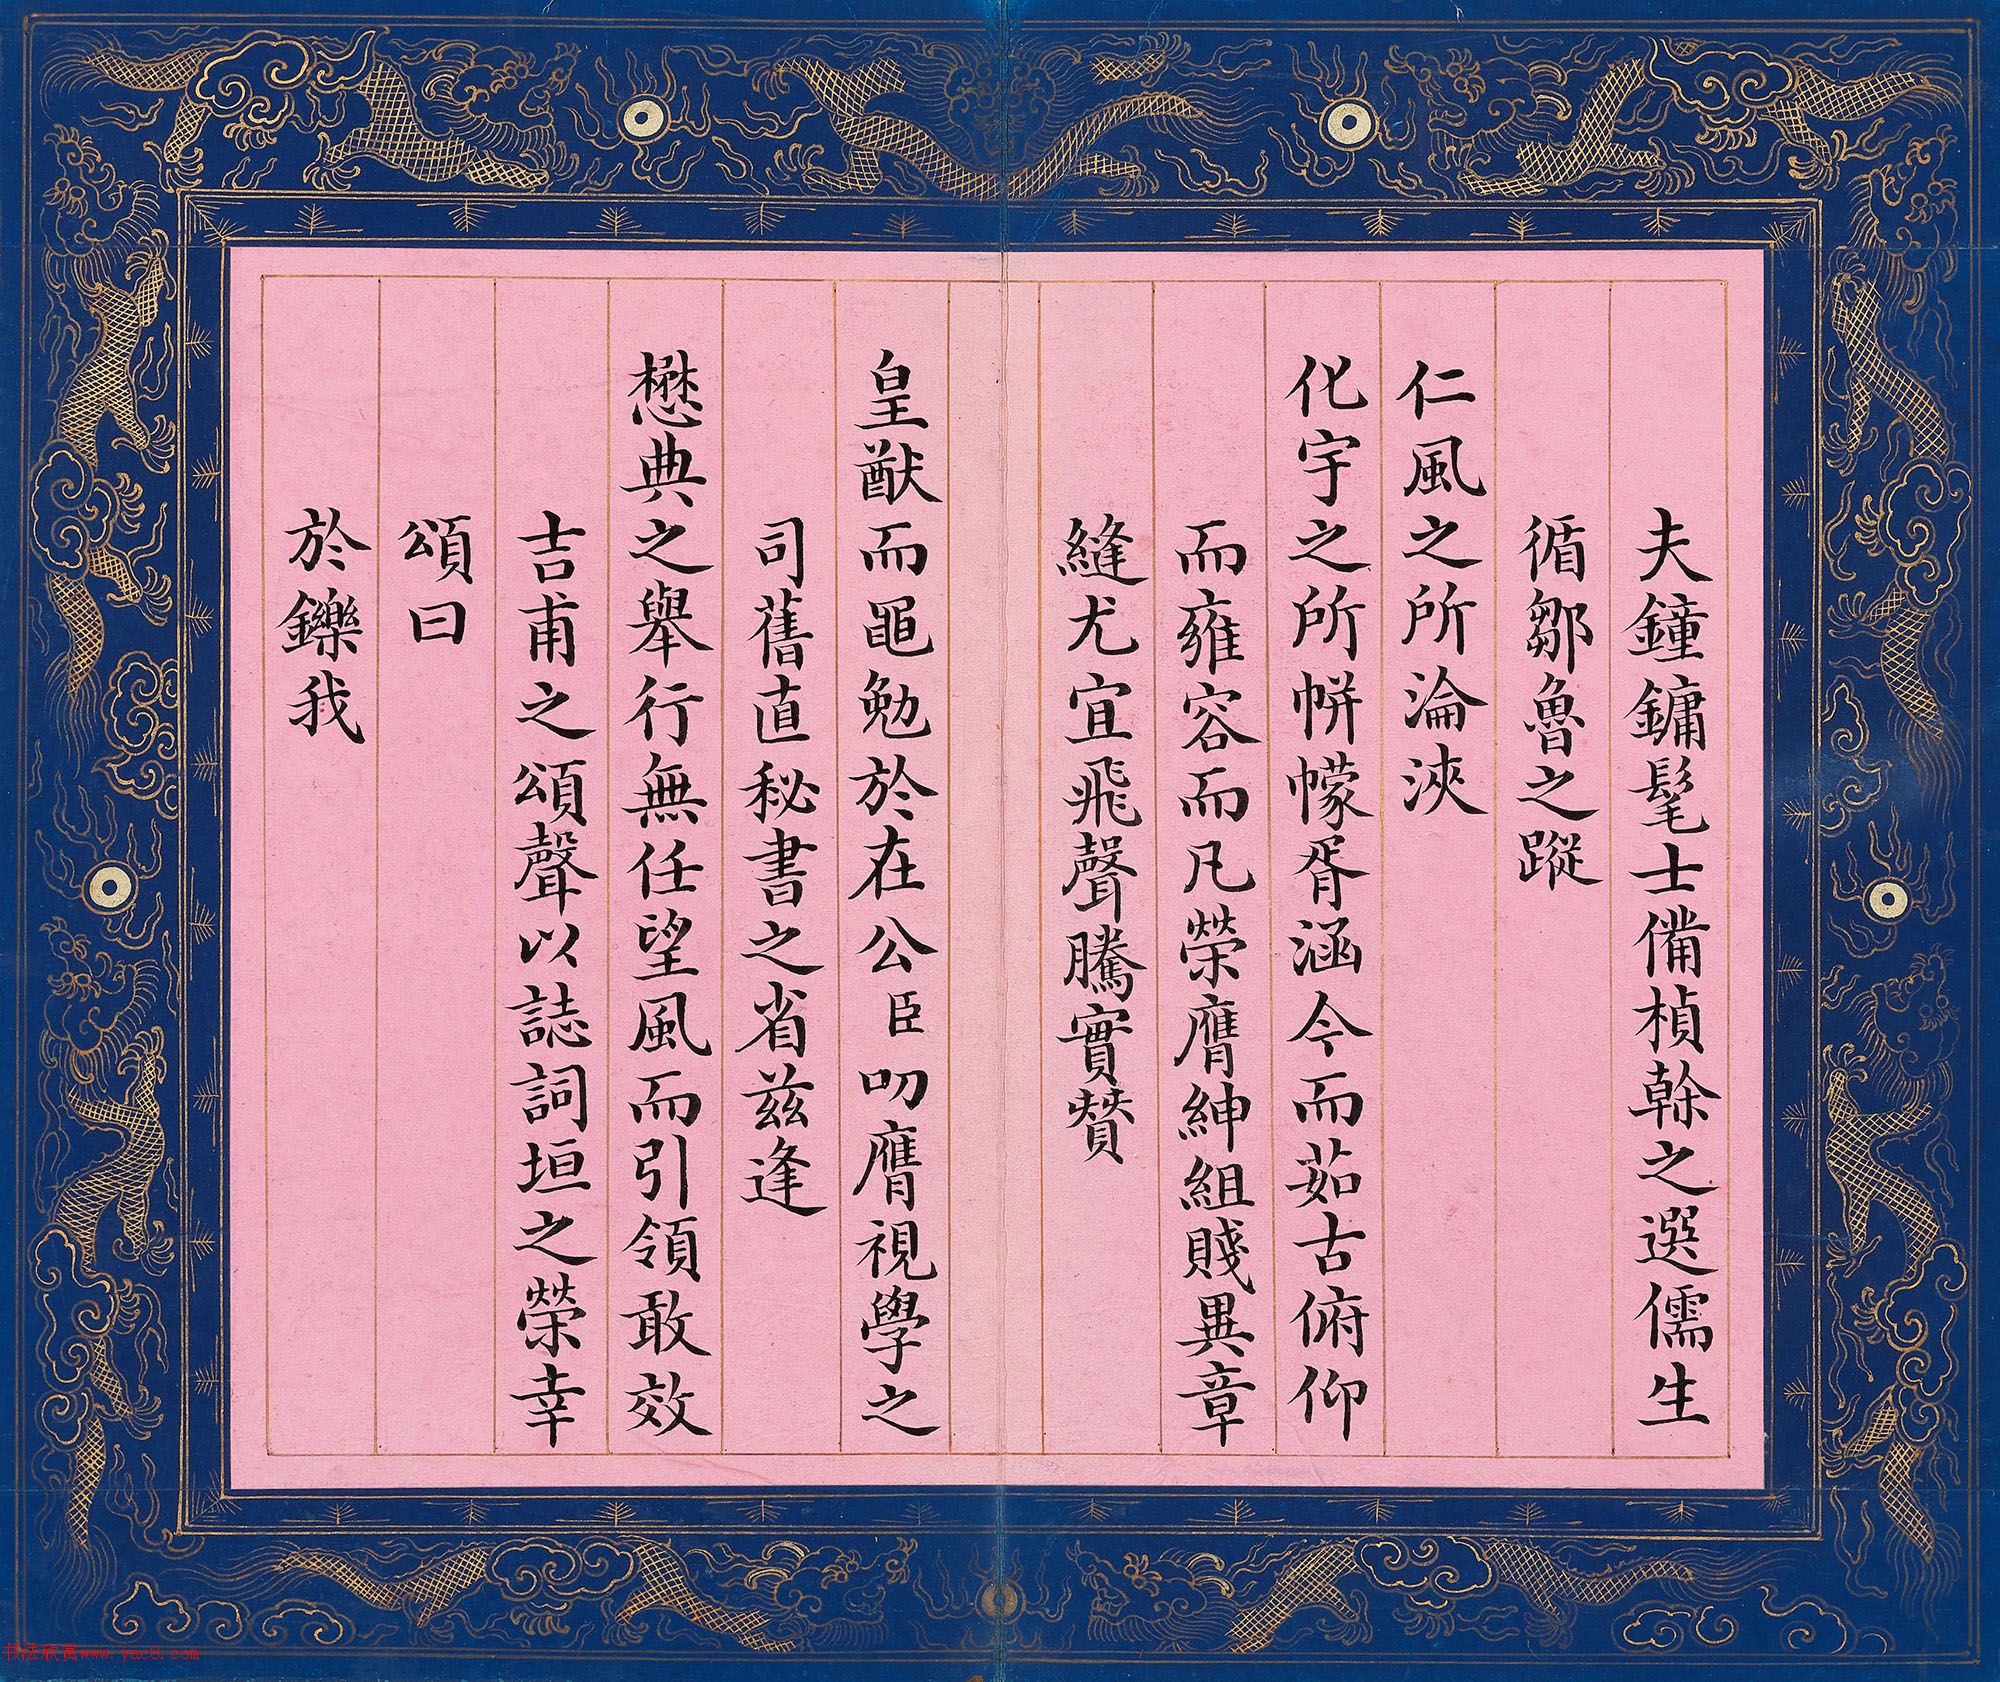 夫鐘鏞髦士備楨榦之選儒生
循鄒魯之蹤
仁風之所淪浹
化宇之所帡幪胥涵今而茹古俯仰
而雍容而凡榮膺紳組賤異章
縫尤宜飛聲騰實贊
皇猷而黽勉於在公臣叨膺視學之
司舊直秘書之省茲逢
懋典之舉行無任望風而引領敢效
吉甫之頌聲以誌詞垣之榮幸
頌曰
於鑠我
书法欣赏www.yac8.com